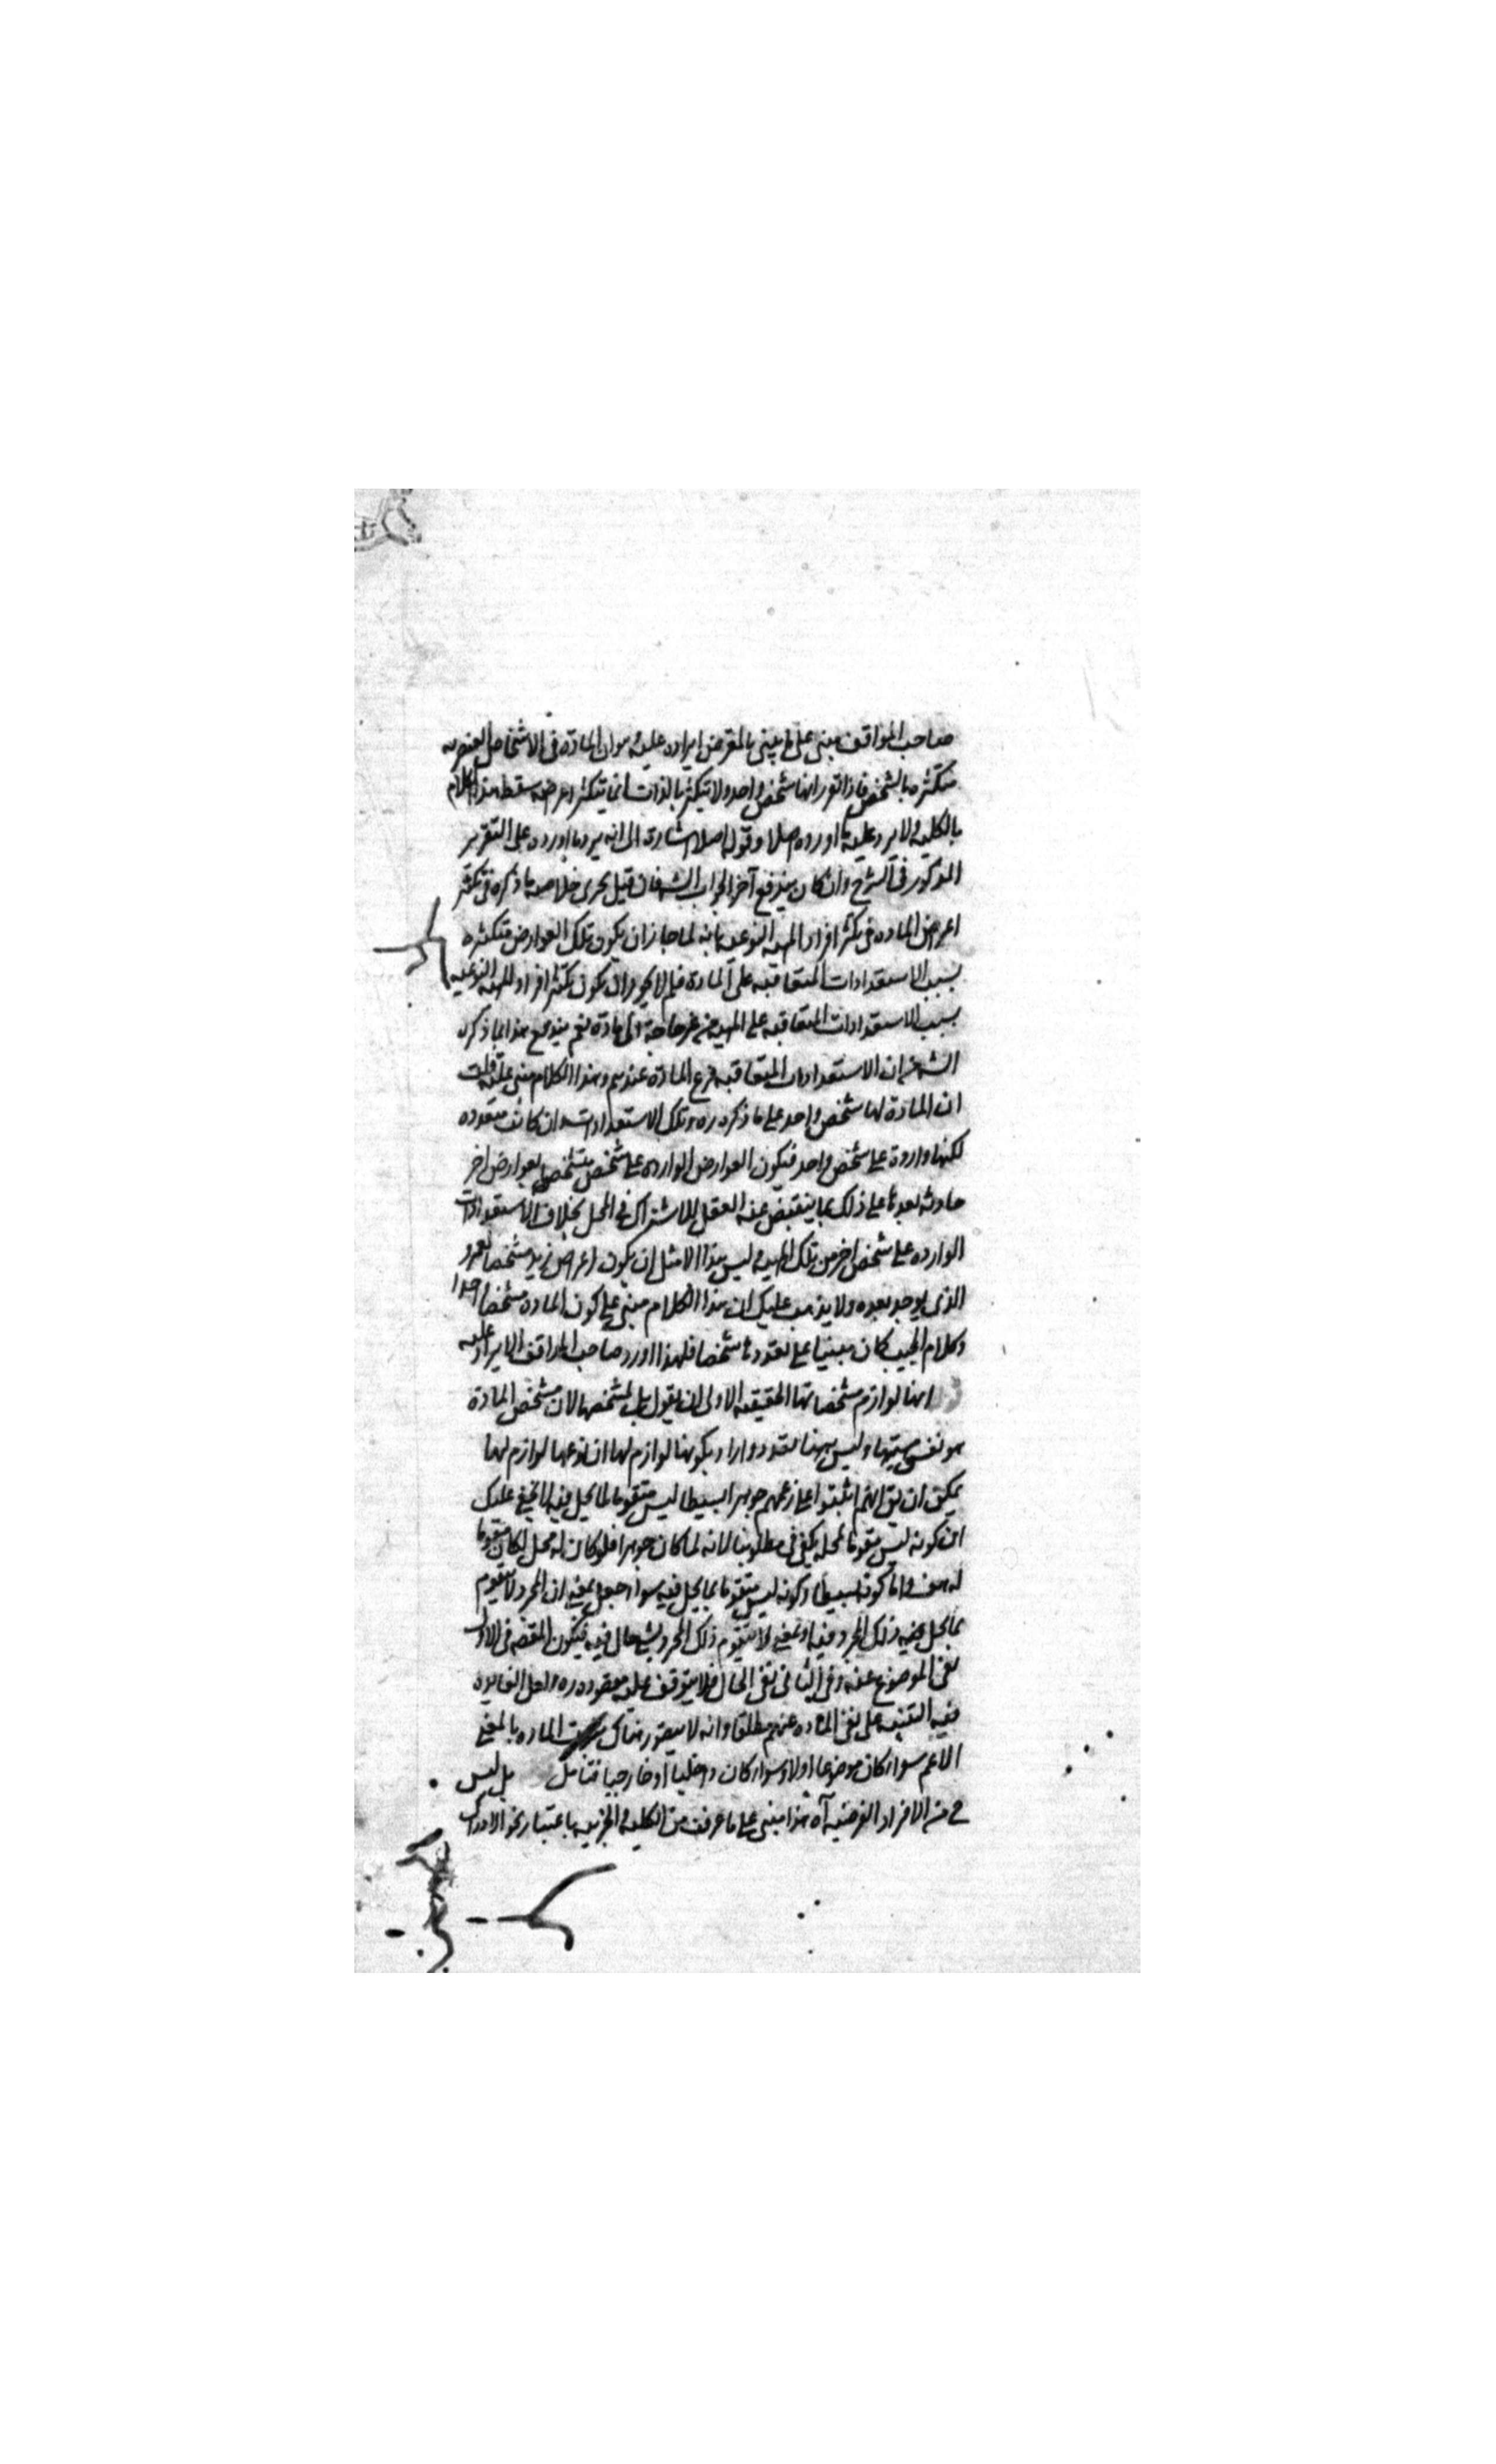 صاحب المواقف مبنى على ما يبتنى المعرض ايراده عليه وهو ان المادة فى الاشخاص العنصريه
متكثره بالشخص فاذا تقرر انها شخص واحد ولا تتكثر بالذات انما يتكثر اعراضه سقط هذا الكلام
بالكليه ولا يرد عليه ما اورده اصلا وقوله اصلا اشارة الى انه يرد ما اورده على التقرير
المذكور فى الشرح وان كان يندفع آخر الجواب الشه فان قيل يجرى خلاصه ما ذكره فى تكثر
اعراض الماده فى تكثر افراد المهيه النوعيه بانه لما جاز ان يكون تلك العوارض متكثره
بسبب الاستعدادات المتعاقبه على المادة فلم لا يجوز ان يكون تكثر افراد المهيه النوعيه
بسبب الاستعدادات المتعاقبه على المهيه من غير حاجة الى مادة نعم يندفع هذا بما ذكره
الشه من ان الاستعدادات المتعاقبه فرع المادة عندهم وهذا الكلام مبنى عليه قلت
ان المادة لها شخص واحد على ما ذكره ره وتلك الاستعدادات وان كانت متعدده
لكنها واردة على شخص واحد فيكون العوارض الوارده على شخص متشخص بعوارض اخر
حادثه بعدها على ذلك بما ينقبض عنه العقل للاشتراك فى المحل بخلاف الاستعدادات
الوارده على شخص اخر من تلك المهيه وليس هذا الا مثل ان يكون اعراض زيد مشخصا لعمرو
الذى يوجد بعده ولا يذهب عليك ان هذا الكلام مبنى على كون المادة مشخصا واحدا
وكلام المجيب كان مبنيا على تعددها شخصا فلهذا اورد صاحب المواقف الايراد عليه
انها لوازم مشخصاتها الحقيقه الاولى ان يقول بل لمشخصها لان مشخص المادة
هو نفس مهيتها وليس ههنا تعدد واراد بكونها لوازم لها ان نوعها لوازم لها
يمكن ان يق انهم اثبتوا على زعمهم جوهرا بسيطا ليس متقوما لما يحل فيه لا يخفى عليك
ان كونه ليس متقوما لمحله يكفى فى مطلوبنا لانه لما كان جوهرا فلو كان له محل لكان مقوما
له هف واما كونه بسيطا وكونه ليس متقوما بما يحل فيه سواء جعل بمعنى ان المجرد لا يتقوم
بما يحل فيه ذلك المجرد فيه او بمعنى لا يتقوم ذلك المجرد بشى حال فيه فيكون المقصه فى الاول
نفى الموضوع عنه وفى الثانى نفى الحال فلا يتوقف عليه مقصوده ره ولعل الفايده
فيه التنبيه على نفى الماده عنهم مطلقا وانه لا يتصور هناك الماده بالمعنى
الاعم سواء كان موضوعا اولا وسواء كان داخليا او خارجيا فتامل بل ليس
فى من الافراد الفرضيه آه هذا مبنى على ما عرفت من الكليه والجزييه باعتبار نحو الادراك